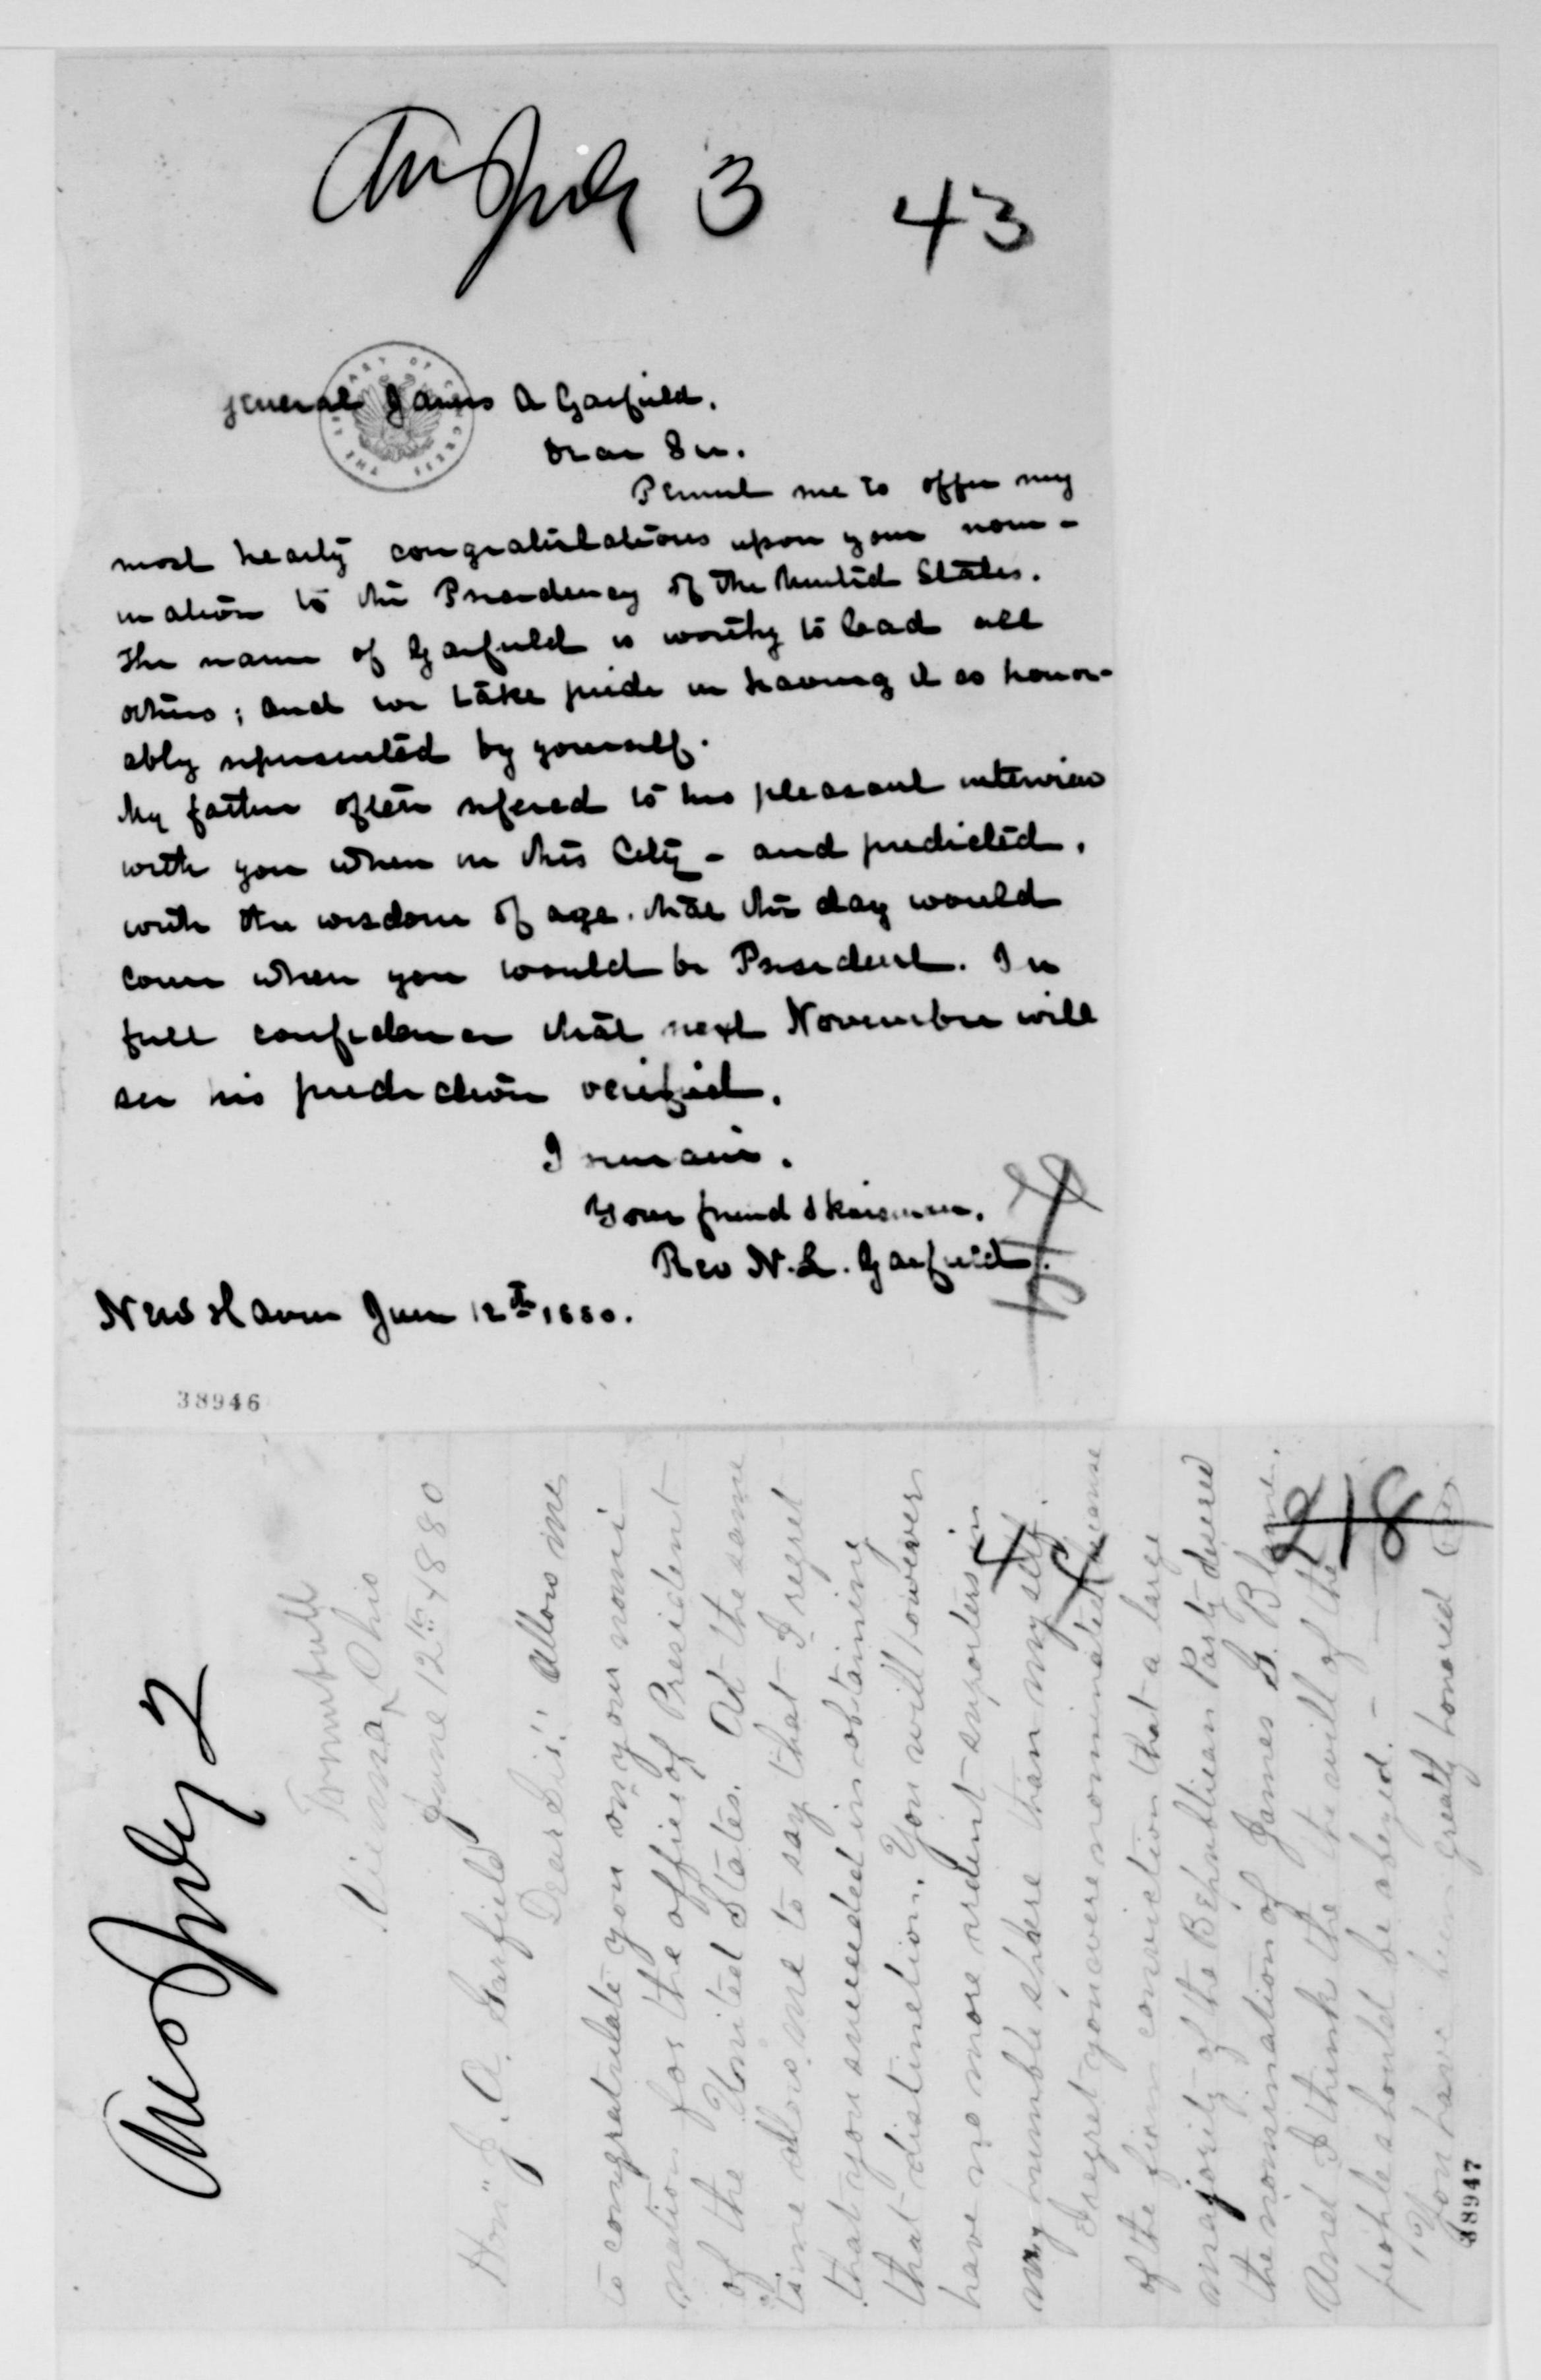 Ans July 3 43
General James A Garfield.
Dear Sir.
Permit me to offer my
most hearty congratulations upon your nom-
ination to the Presidency of the United States.
The name of Garfield is worthy to lead all
others; and we take pride in having it so honor-
ably represented by yourself.
My father often refered to his pleasant interview
with you when in this City - and predicted,
with the wisdom of age, that the day would
come when you would be President. In
full confidence that next November will
see his prediction verified.
I remain.
Your friend & kinsman.
Rev N. L. Garfield.
New Haven June 12th 1880.
38946
Ans July 2
Trumbull
Vienna, Ohio
June 12th 1880
Hon" J. A. Garfield
Dear Sir!! Allow me
to congratulate you on your nomi-
nation for the office of President
of the United States. At the same
time allow me to say that I regret
that you succeeded in obtaining
that distinction. You will however
have no more ardent suporters in
my humble sphere than myself.
I regret you were nominated because
of the firm conviction that a large
majority of the Republican Party desired
the nomination of James G. Blaine.
And I think the the will of the
people should be obeyed. -
You have been greatly honored
218
38947